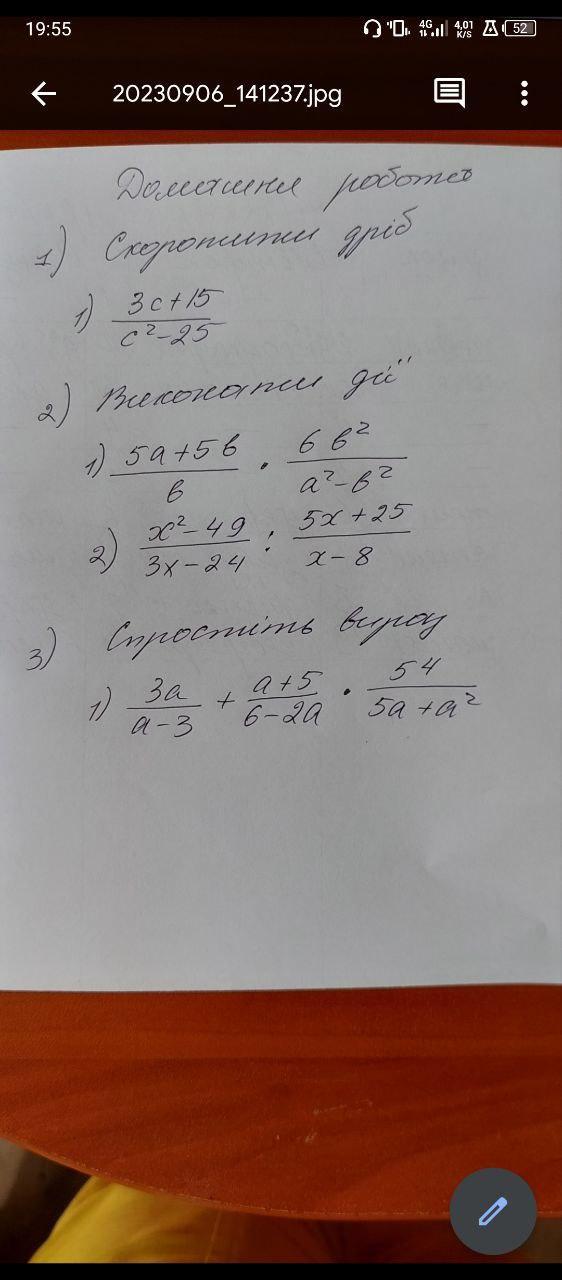 19:55
4G 4,01 K/S 52
20230906_141237.jpg
Домашня робота
1) Скоротити дріб
1) (3c+15)/(c²-25)
2) Виконати дії
1) (5a+5b)/b · (6b²)/(a²-b²)
2) (x²-49)/(3x-24) : (5x+25)/(x-8)
3) Спростіть вираз
1) 3a/(a-3) + (a+5)/(6-2a) · 54/(5a+a²)